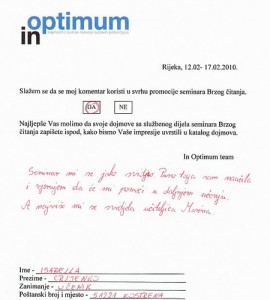 in optimum
Rijeka, 12.02- 17.02.2010.
Slažem se da se moj komentar koristi u svrhu promocije seminara Brzog čitanja.
DA NE
Najljepše Vas molimo da svoje dojmove sa službenog dijela seminara Brzog
čitanja zapišete ispod, kako bismo Vaše impresije uvrstili u katalog dojmova.
In Optimum team
Seminar mi se jako svidio. Puno toga sam naučila
i vjerujem da će mi pomoći u daljnjem učenju.
A najviše mi se svidjela učiteljica Marina.
Ime - ISABELLA
Prezime -
Zanimanje - UČENIK
Poštanski broj i mjesto - 51221 KOSTRENA